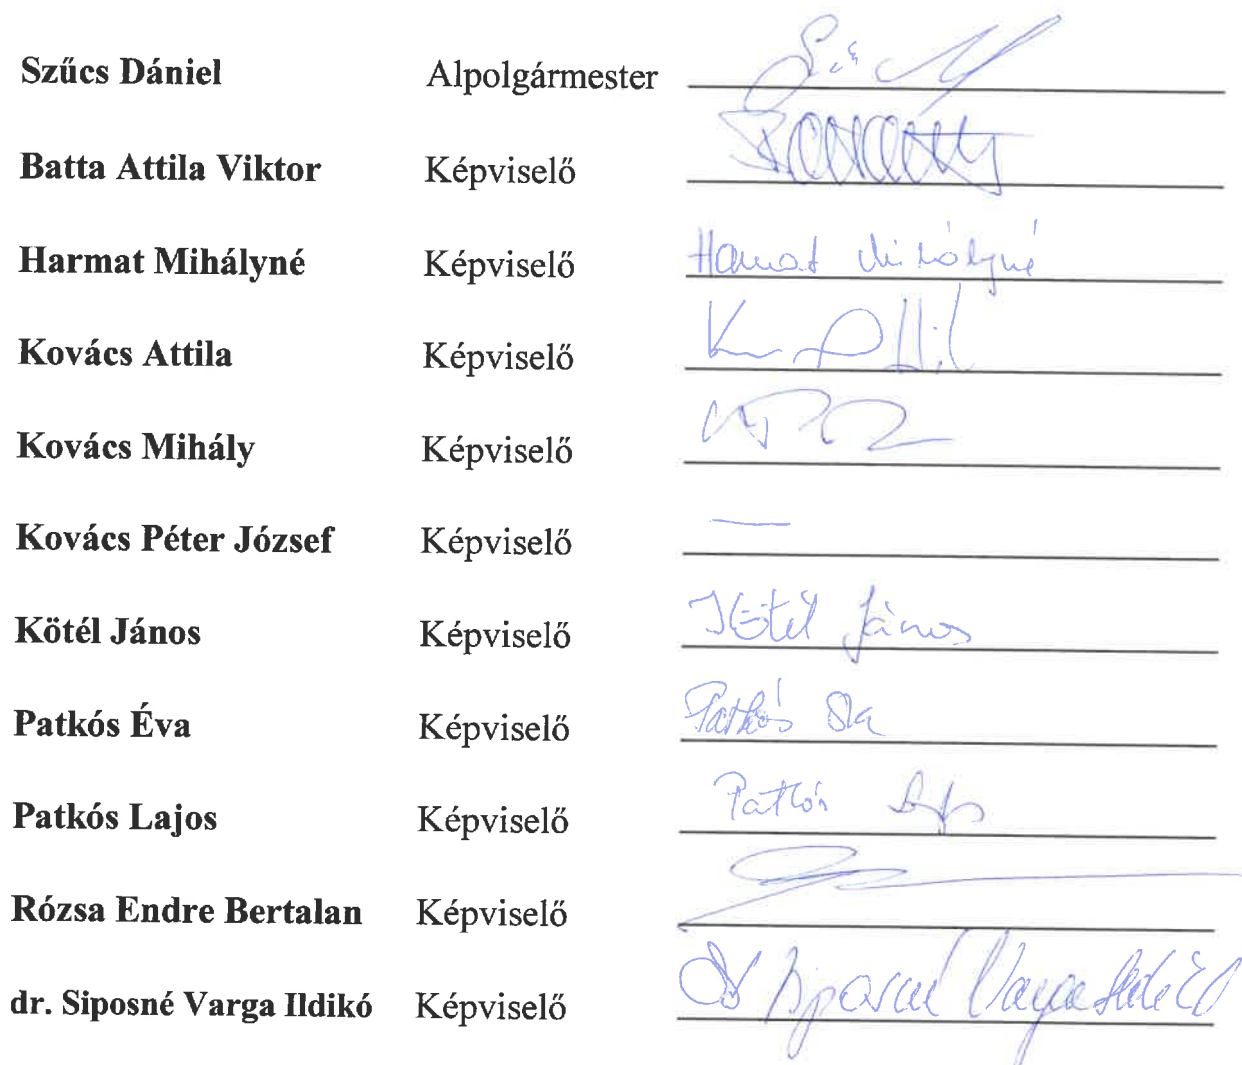 Szűcs Dániel Alpolgármester
Batta Attila Viktor Képviselő
Harmat Mihályné Képviselő Harmat Mihályné
Kovács Attila Képviselő
Kovács Mihály Képviselő
Kovács Péter József Képviselő —
Kötél János Képviselő Kötél János
Patkós Éva Képviselő Patkós Éva
Patkós Lajos Képviselő Patkós Lajos
Rózsa Endre Bertalan Képviselő
dr. Siposné Varga Ildikó Képviselő dr Siposné Varga Ildikó